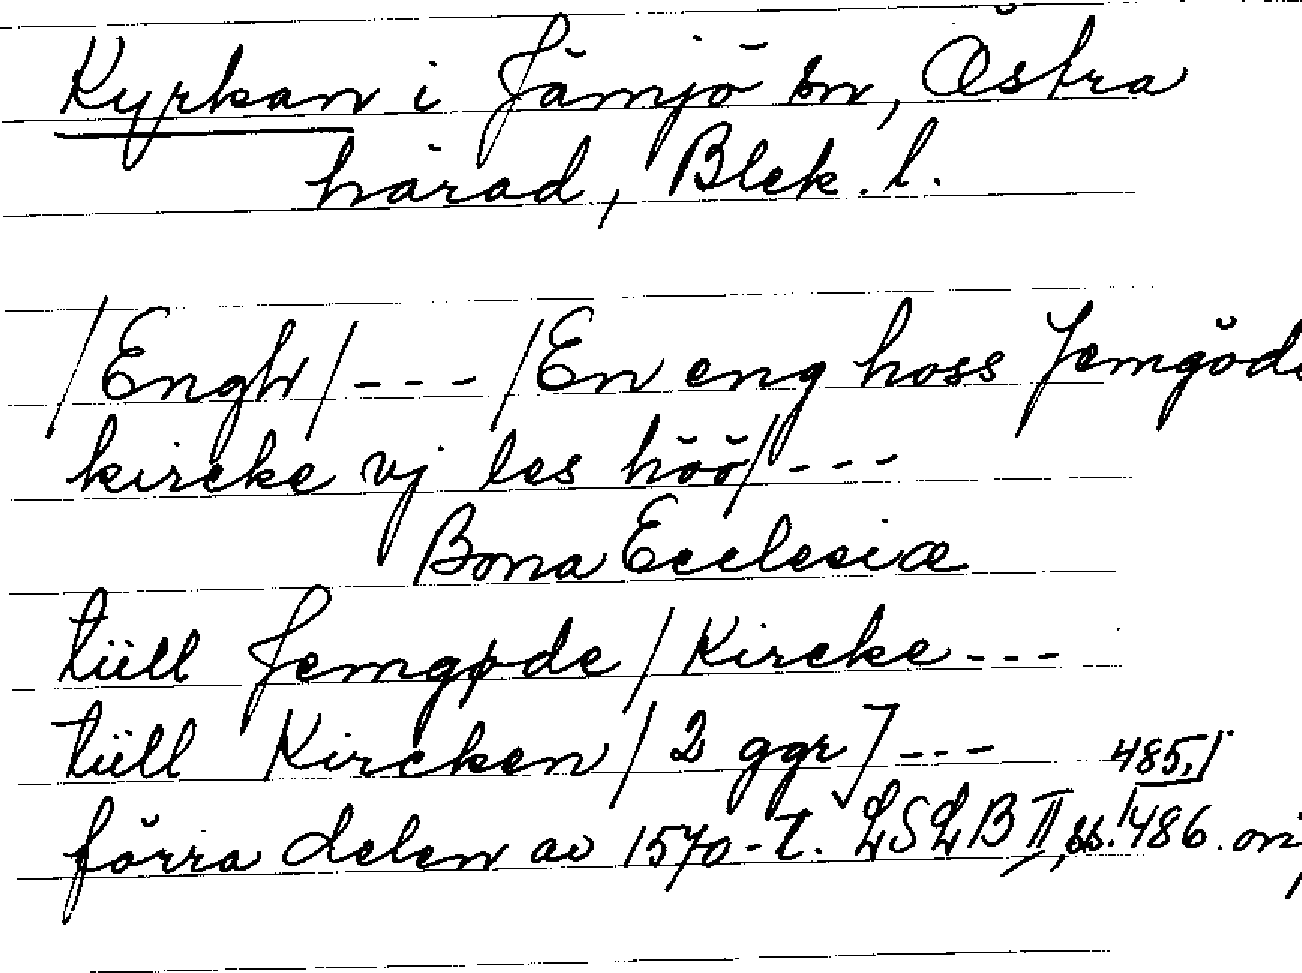 Kyrkan i Jämjö sn, Östra
härad, Blek. l.
/Engh/ --- /En eng hoss Jemgöde
kircke vj les höö/ ---
Bona Ecclesiæ
tüll Jemgøde / Kircke ---
tüll Kircken / 2 ggr] ---
485,
förra delen av 1570-t. LSLB II, ss. 486. ori